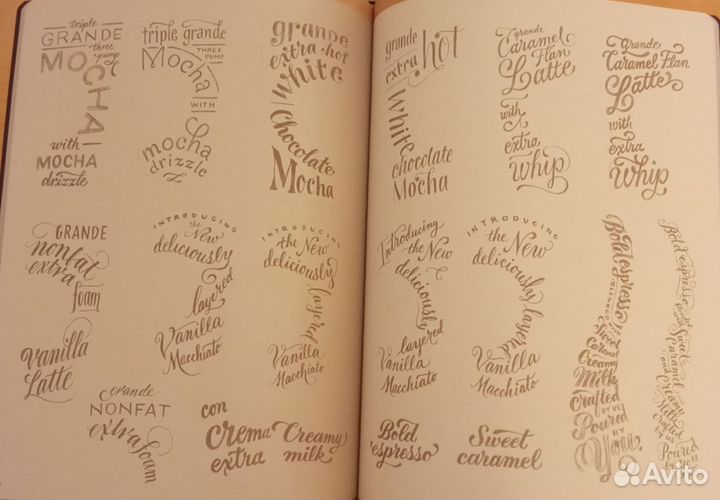 triple
GRANDE
three
pump
MOCHA
with
MOCHA
drizzle
triple grande
THREE
PUMP
Mocha
WITH
mocha
drizzle
grande
extra-hot
white
Chocolate
Mocha
GRANDE
nonfat
extra
foam
Vanilla
Latte
INTRODUCING
the New
deliciously
layered
Vanilla
Macchiato
INTRODUCING
the New
deliciously
layered
Vanilla
Macchiato
grande
NONFAT
extra foam
con
crema
extra
Creamy
milk
grande
extra hot
White
chocolate
Mocha
grande
Caramel
Flan
Latte
with
extra
whip
Grande
Caramel Flan
Latte
with
extra
Whip
Introducing
the New
deliciously
layered
Vanilla
Macchiato
INTRODUCING
the New
deliciously
layered
Vanilla
Macchiato
Bold espresso
Sweet
Caramel
Creamy
Milk
Crafted
BY US
Poured
BY
You.
Bold
espresso
and Sweet
Caramel
and Creamy
Milk
Crafted
by us
Poured
by you
Bold
espresso
Sweet
caramel
Avito